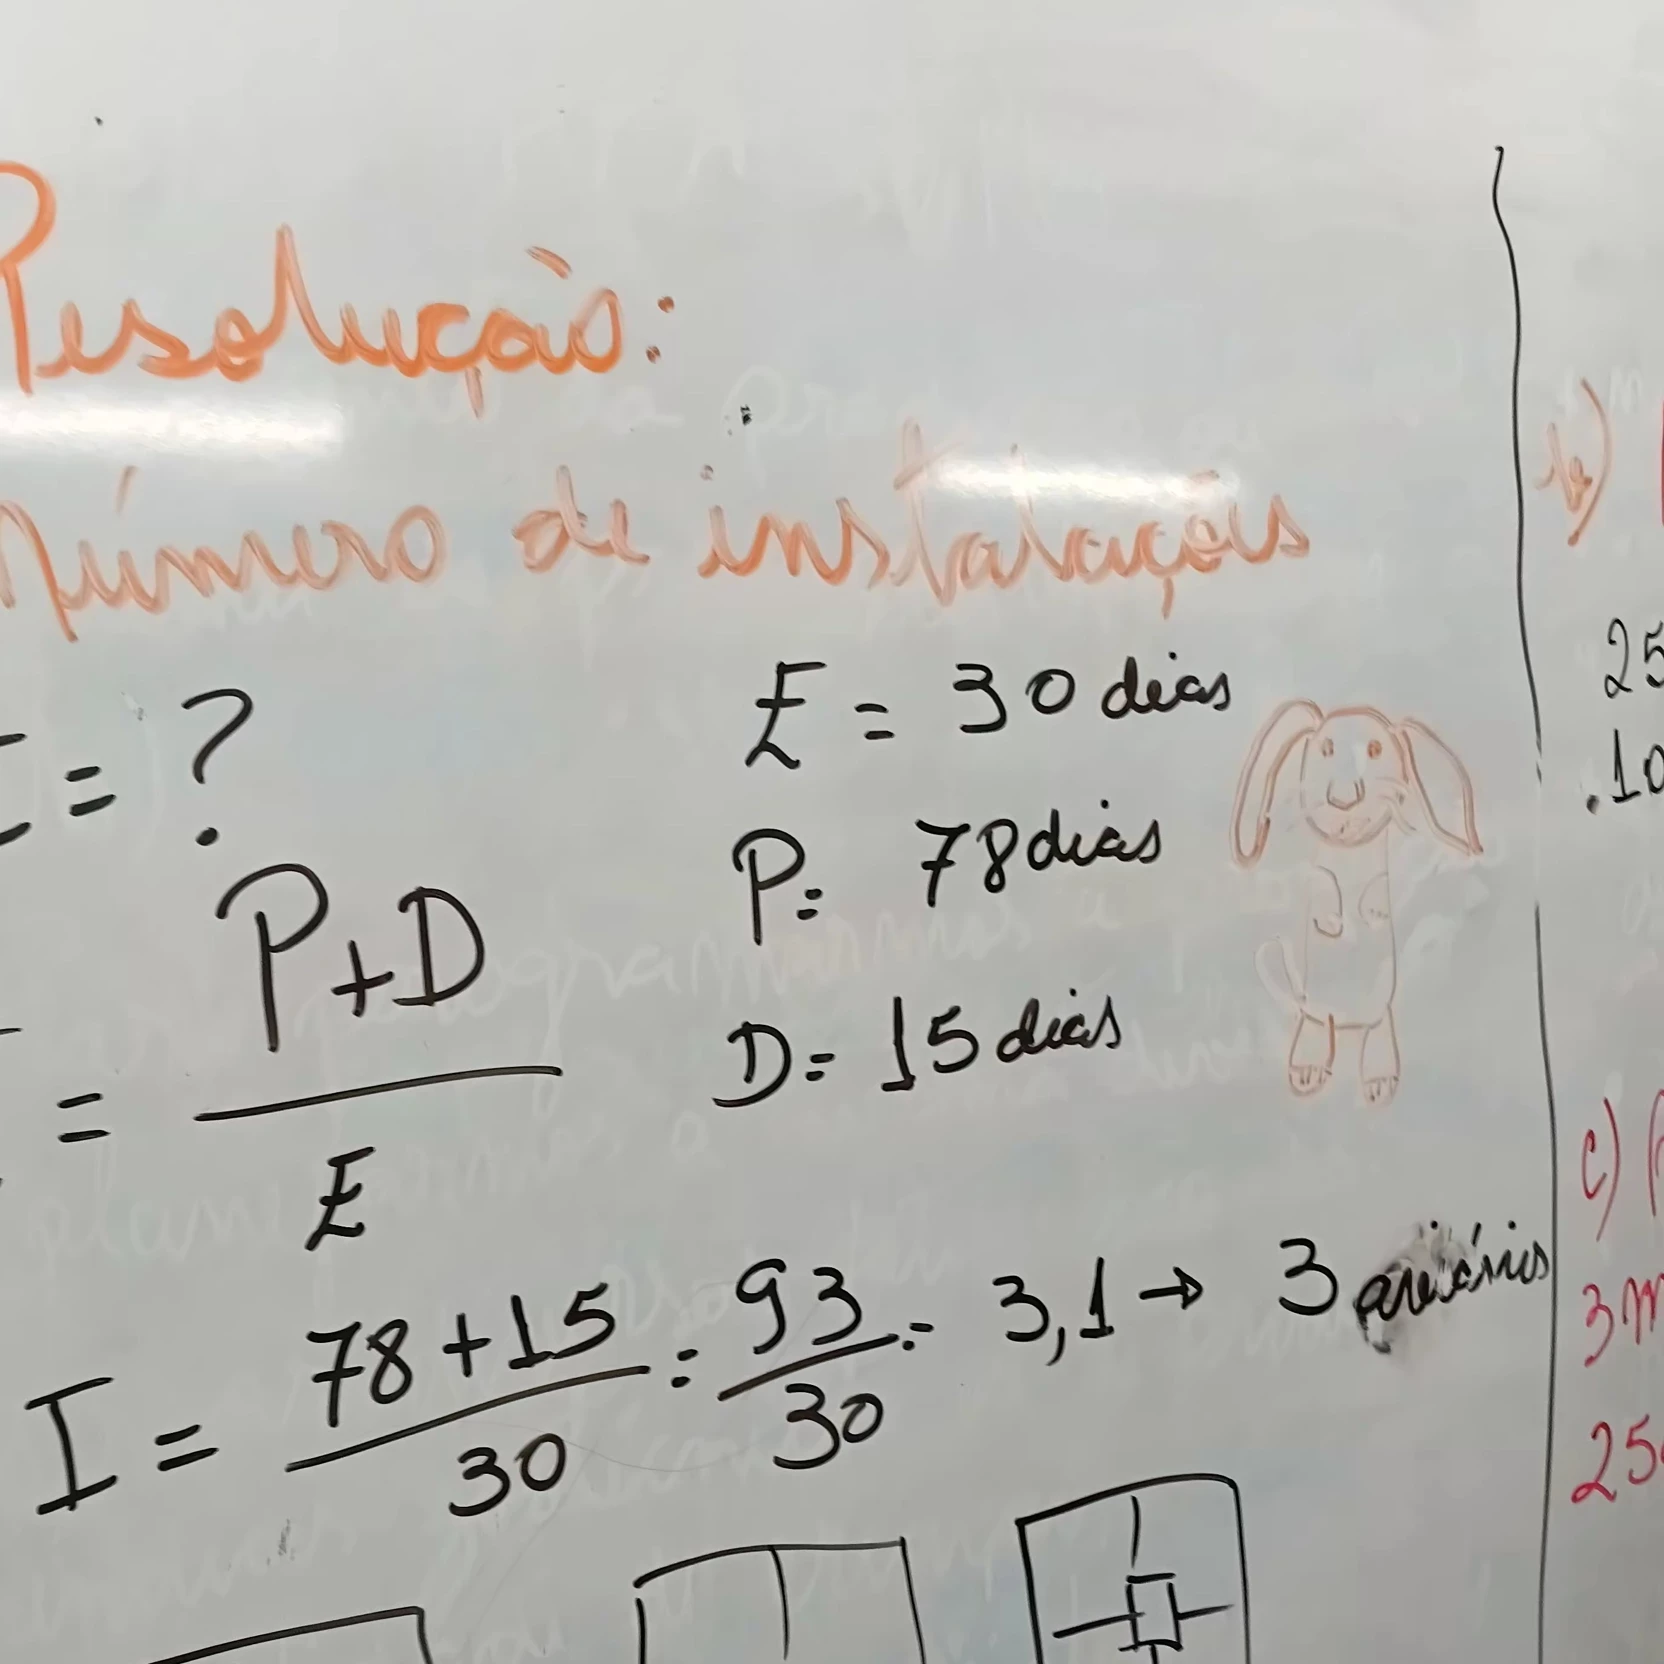 Resolução:
Número de instalações
I = ?
E = 30 dias
P = 78 dias
D = 15 dias
I = P+D / E
I = 78+15 / 30 = 93 / 30 = 3,1 → 3 aviários
b)
25
.10
c)
3m
25